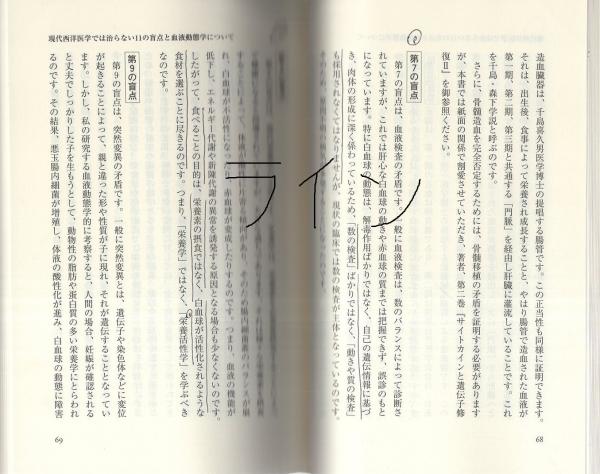 造血臓器は、千島喜久男医学博士の提唱する腸管です。この正当性も同様に証明できます。
それは、出生後、食事によって栄養され成長することと、やはり腸管で造血された血液が
第一期、第二期、第三期と共通する「門脈」を経由し肝臓に灌流していることです。これ
を千島・森下学説と呼ぶのです。
さらに、骨髄造血を完全否定するためには、骨髄移植の矛盾を証明する必要があります
が、本書では紙面の関係で割愛させていただき、著者、第二巻『サイトカインと遺伝子修
復Ⅱ』を御参照ください。
第7の盲点
第7の盲点は、血液検査の矛盾です。一般に血液検査は、数のバランスによって診断さ
れていますが、これでは肝心な白血球の動きや赤血球の質までは把握できず、誤診のもと
になっています。特に白血球の動態は、解毒作用ばかりではなく、自己の遺伝情報に基づ
き、肉体の形成に深く係わっているため、「数の検査」ばかりではなく、「動きや質の検査」
も採用されなくてはなりませんが、現状の臨床では数の検査が主体となっているのです。
68
現代西洋医学では治らない11の盲点と血液動態学について
ライン
れ、白血球が活性化
赤血球が変成したりするのです。つまり、血液の機能が
低下し、エネルギー代謝や新陳代謝の異常を誘発する原因となる場合も少なくないのです。
したがって、食べることの目的は、栄養素の摂食ではなく、白血球が活性化されるような
食材を選ぶことに尽きるのです。つまり、「栄養学」ではなく、「栄養活性学」を学ぶべき
なのです。
第9の盲点
第9の盲点は、突然変異の矛盾です。一般に突然変異とは、遺伝子や染色体などに変位
が起きることによって、親と違った形や性質が子に現れ、それが遺伝することとなってい
ます。しかし、私の研究する血液動態学的に考察すると、人間の場合、妊娠が確認される
と丈夫でしっかりした子を生もうとして、動物性の脂肪や蛋白質の多い栄養学にとらわれ
るのです。その結果、悪玉腸内細菌が増殖し、体液の酸性化が進み、白血球の動態に障害
69